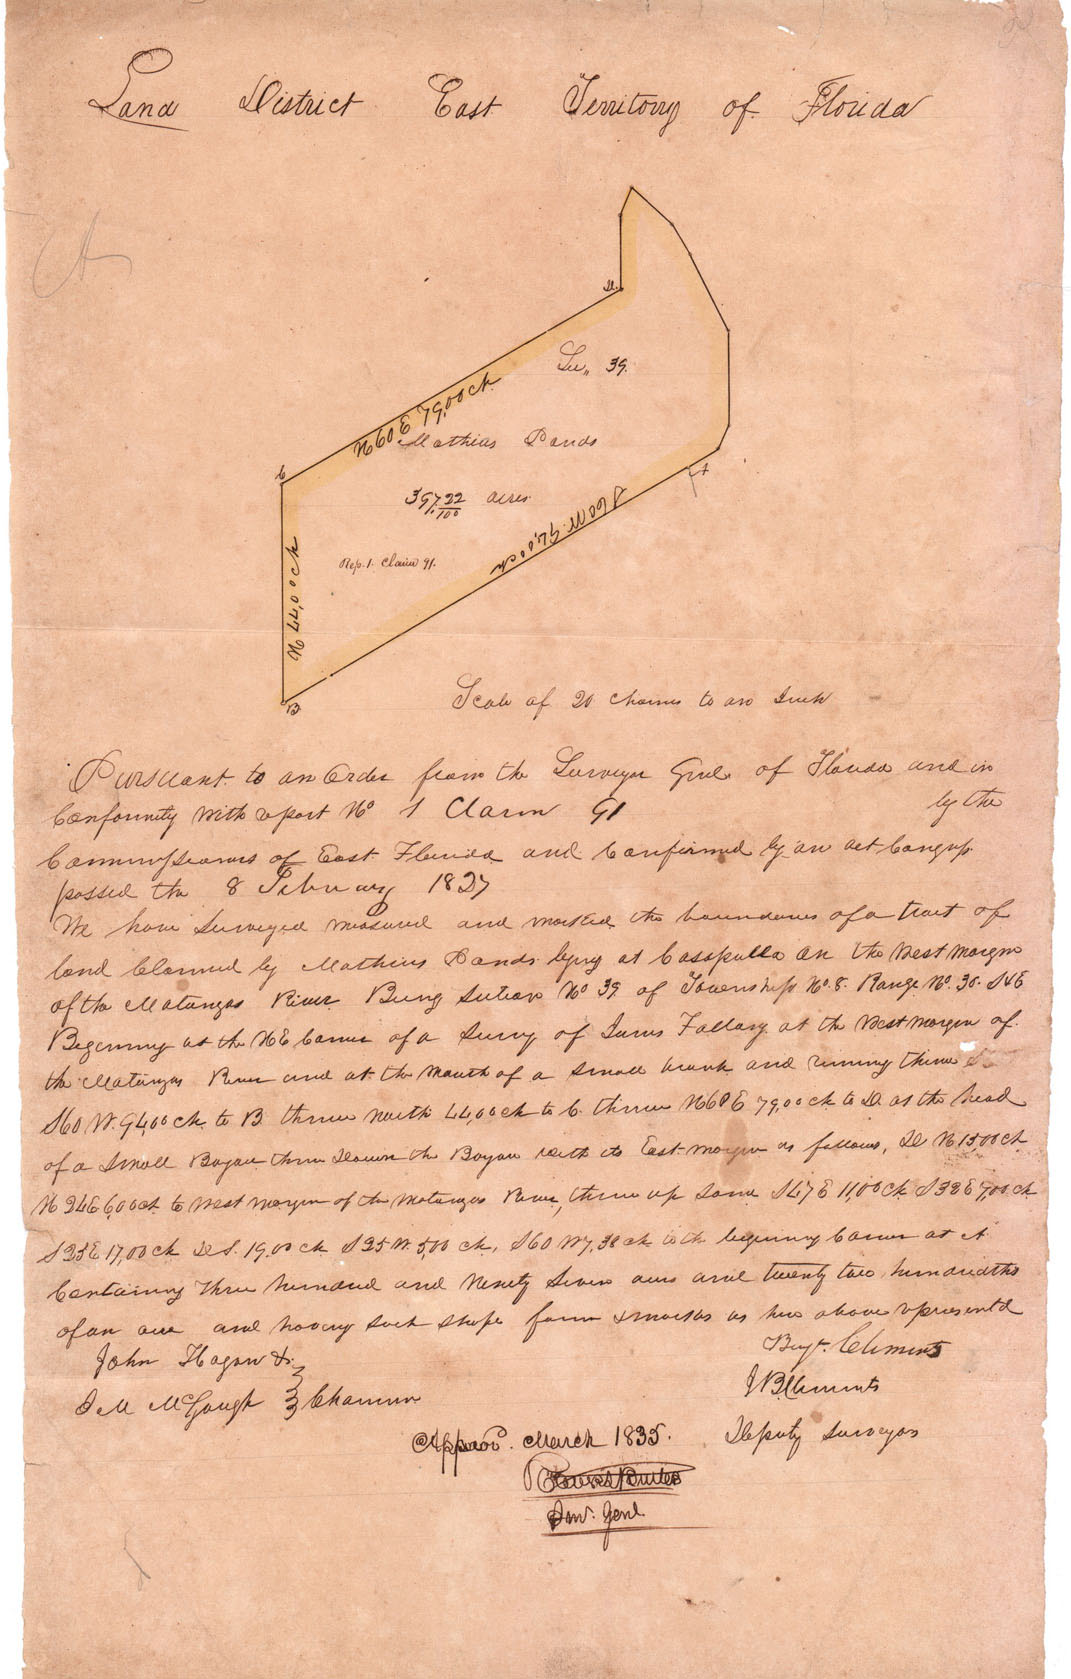 Land District East Territory of Florida
D.
Sec,, 39.
N 60 E 79,00 ck
Mathias Ponds
C
397.22/100 acres
S 60 W. 94,00 ck
A
Rep. 1. Claim 91.
N 44,00 ck
B
Scale of 20 chains to an Inch
Pursuant to an Order from the Surveyor Genl. of Florida and in
Conformity with report No 1 Claim 91 by the
Commissioners of East Florida and Confirmed by an act Congress
passed the 8 February 1827
We have Surveyed measured and marked the boundaries of a tract of
land Claimed by Mathias Ponds lying at Casapulla on the West margin
of the Matanzas River Being Section No 39 of Township No. 8. Range No. 30. S & E
Begenning at the N E Corner of a Survey of James Fallary at the West margin of
the Matanzas River and at the Mouth of a Small branch and running thence
S 60 W. 94,00 ck to B. thence North 44,00 ck to C. thence N 60 E 79,00 ck to D. at the head
of a Small Bayou thence Down the Bayou with its East margin as follows, D N 15,00 ck
N 24 E 6,00 ck to West margin of the Matanzas River, thence up Same S 47 E 11,00 ck S 32 E 7,00 ck
S 25 E 17,00 ck S. 19,00 ck S 25 W. 5,00 ck, S 60 W 7,38 ck to the beginning Corner at A
Containing three hundred and Ninety Seven acres and twenty two hundredths
of an acre and having such shape form & marks as here above represented
John Hogan
McGough } Chainmen
Benj. Clements
J B Clements
Deputy Surveyors
Approv. March 1835.
Robert Butler
Surv. Genl.